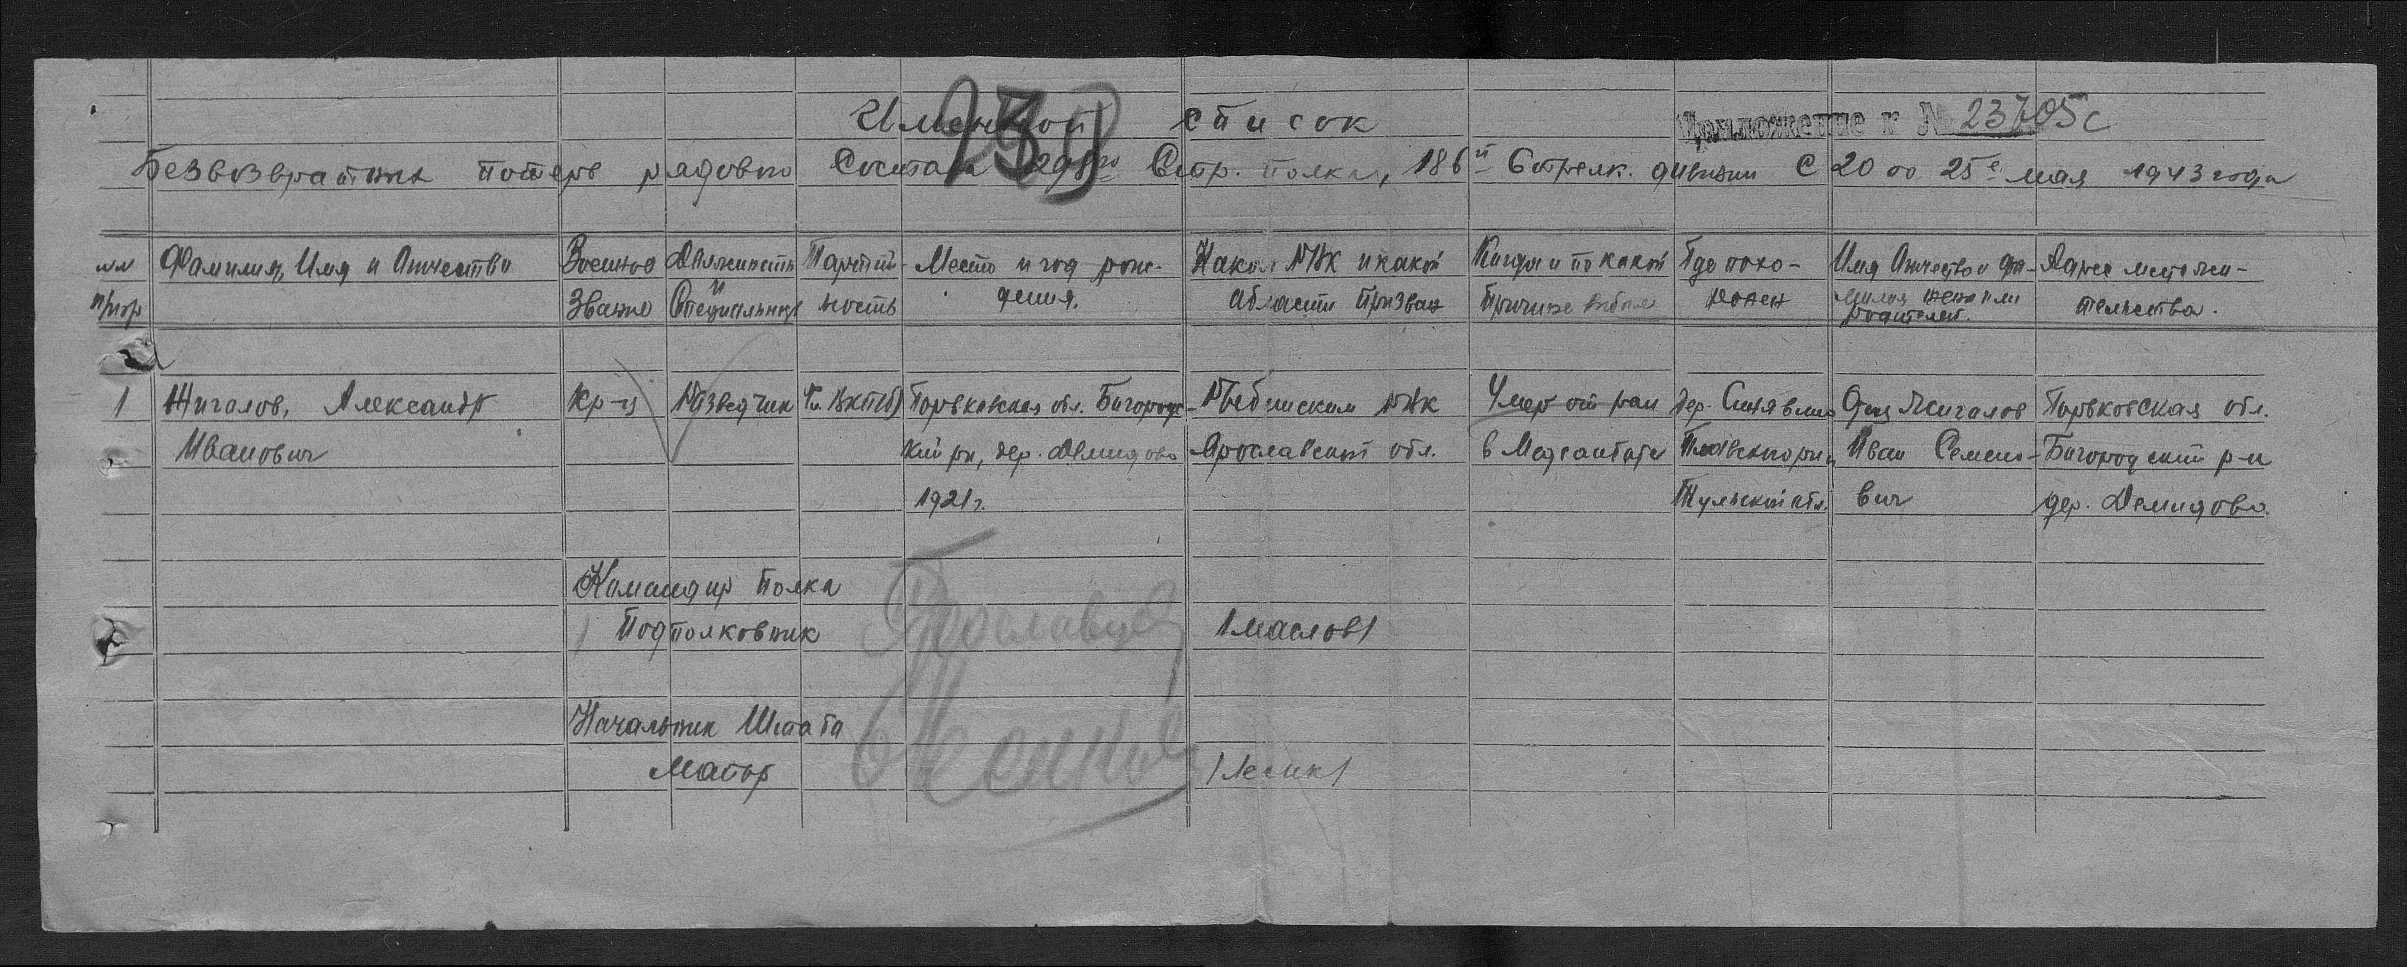 Именной список
Приложение к № 23705с
Безвозвратных потерь рядового состава 298го Стр. полка, 186й Стрелк. дивизии с 20 по 25е мая 1943 года
№№ п/пор
Фамилия, Имя и Отчество
Военное звание
Должность и специальность
Партийность
Место и год рождения.
Каким РВК и какой области призван
Когда и по какой причине выбыл
Где похоронен
Имя Отчество и фамилия жены или родителей.
Адрес местожительства.
1
Жигалов, Александр
Иванович
Кр-ц
Разведчик
Чл. ВКП(б)
Горьковская обл. Богородс-
кий р-н, дер. Демидово
1921 г.
РВК
Ярославской обл.
Умер от ран
в Медсанбате
дер.
Тульской обл.
Отец Жигалов
Иван Семено-
вич
Горьковская обл.
Богородский р-н
дер. Демидово.
Командир полка
Подполковник
/Маслов/
Начальник Штаба
Майор